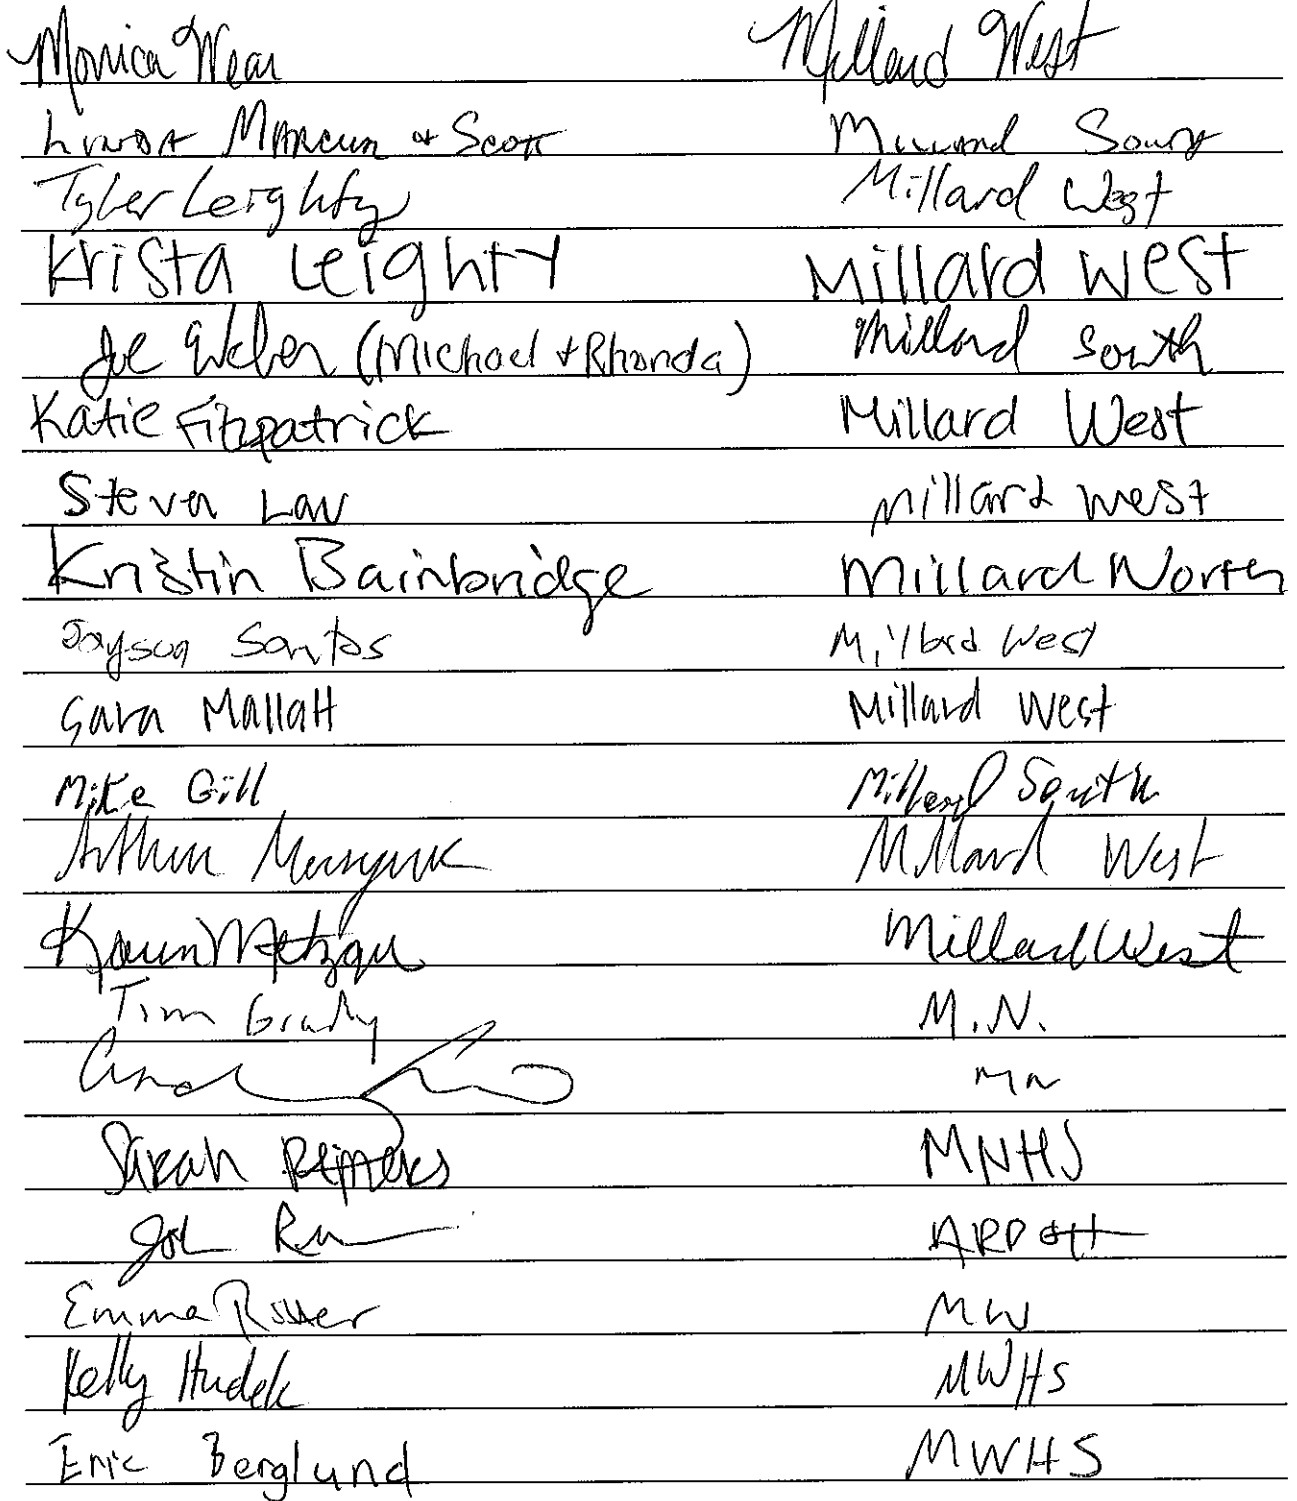 Monica Wear Millard West
Linda Marcum & Scott Millard South
Tyler Leighty Millard West
Krista Leighty Millard West
Joe Weber (Michael + Rhonda) Millard South
Katie Fitzpatrick Millard West
Steven Lau Millard West
Kristin Bainbridge Millard North
Jayson Santos Millard West
Sara Mallatt Millard West
Mike Gill Millard South
Arthur Millard West
Karen Metzger Millard West
Tim Grady M.N.
MN
Sarah Reimers MNHS
Emma Ritter MW
Kelly Hudek MWHS
Eric Berglund MWHS